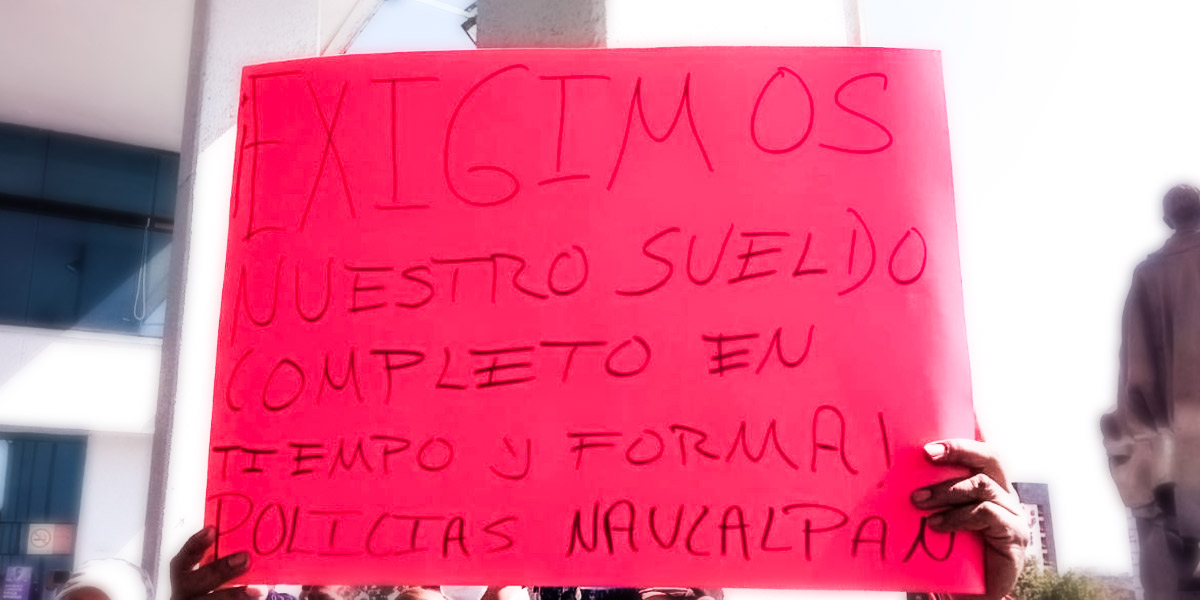 ¡EXIGIMOS
NUESTRO SUELDO
COMPLETO EN
TIEMPO Y FORMA!
POLICIAS NAUCALPAN